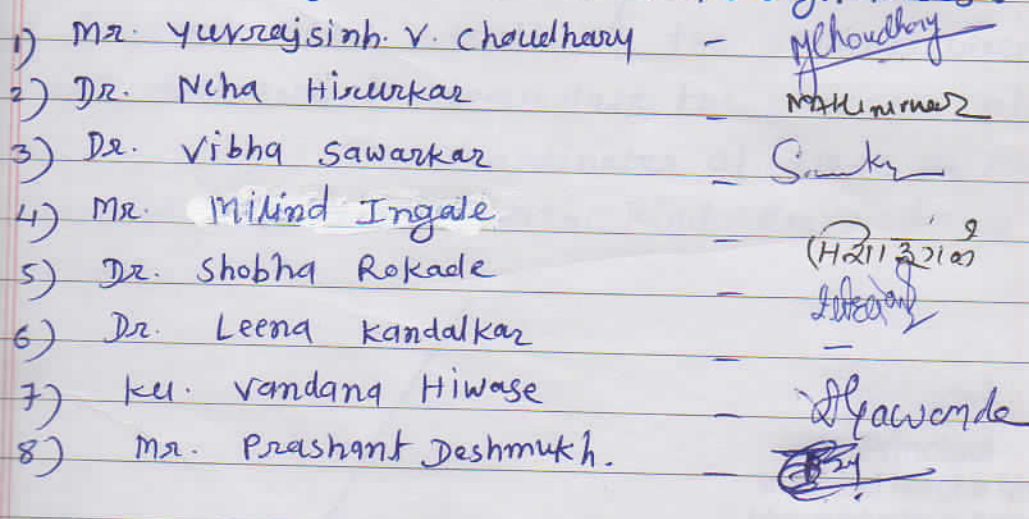 1) Mr. Yuvrajsinh. V. Choudhary - YChoudhary
2) Dr. Neha Hirurkar -
3) Dr. Vibha Sawarkar -
4) Mr. Milind Ingale -
5) Dr. Shobha Rokade -
6) Dr. Leena Kandalkar - -
7) Ku. Vandana Hiwase -
8) Mr. Prashant Deshmukh. -